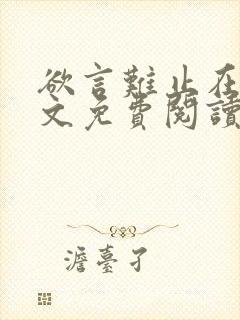 欲言難止在
文免費閱讀
澹臺孑